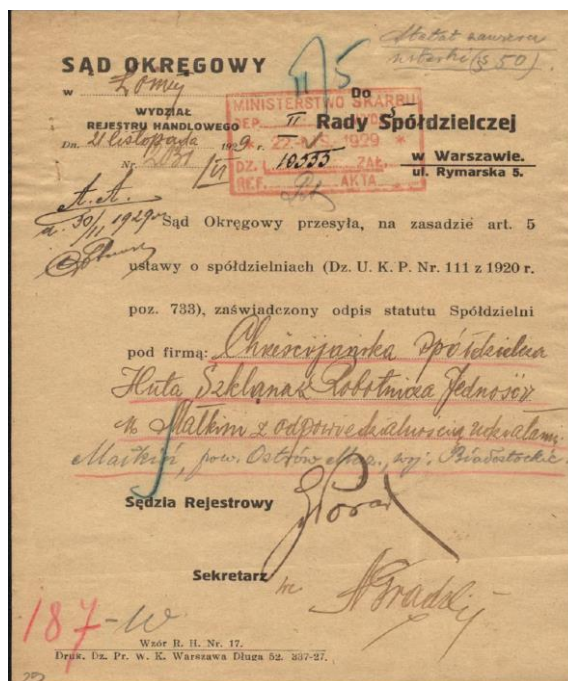 Statut zawiera
usterki (§ 50)
II/5
SĄD OKRĘGOWY
w Łomży
WYDZIAŁ
REJESTRU HANDLOWEGO
Dn. 21 listopada 1929 r.
Nr. 2031
Do
Rady Spółdzielczej
w Warszawie.
ul. Rymarska 5.
MINISTERSTWO SKARBU
DEP. II
22.XI.1929
DZ. L. 10555 ZAŁ.
REF. AKTA
A. A.
d. 30/11 1929 r.
Sąd Okręgowy przesyła, na zasadzie art. 5
ustawy o spółdzielniach (Dz. U. K. P. Nr. 111 z 1920 r.
poz. 733), znświadczony odpis statutu Spółdzielni
pod firmą: Chrześcijańska Spółdzielcza
Huta Szklana Robotnicza Jedność
w Małkini z odpowiedzialnością udziałami
Małkinia, pow. Ostrów Maz., woj. Białostockie.
Sędzia Rejestrowy
Sekretarz
187-w
Wzór R. H. Nr. 17.
Druk. Dz. Pr. w. K. Warszawa Długa 52. 337-27.